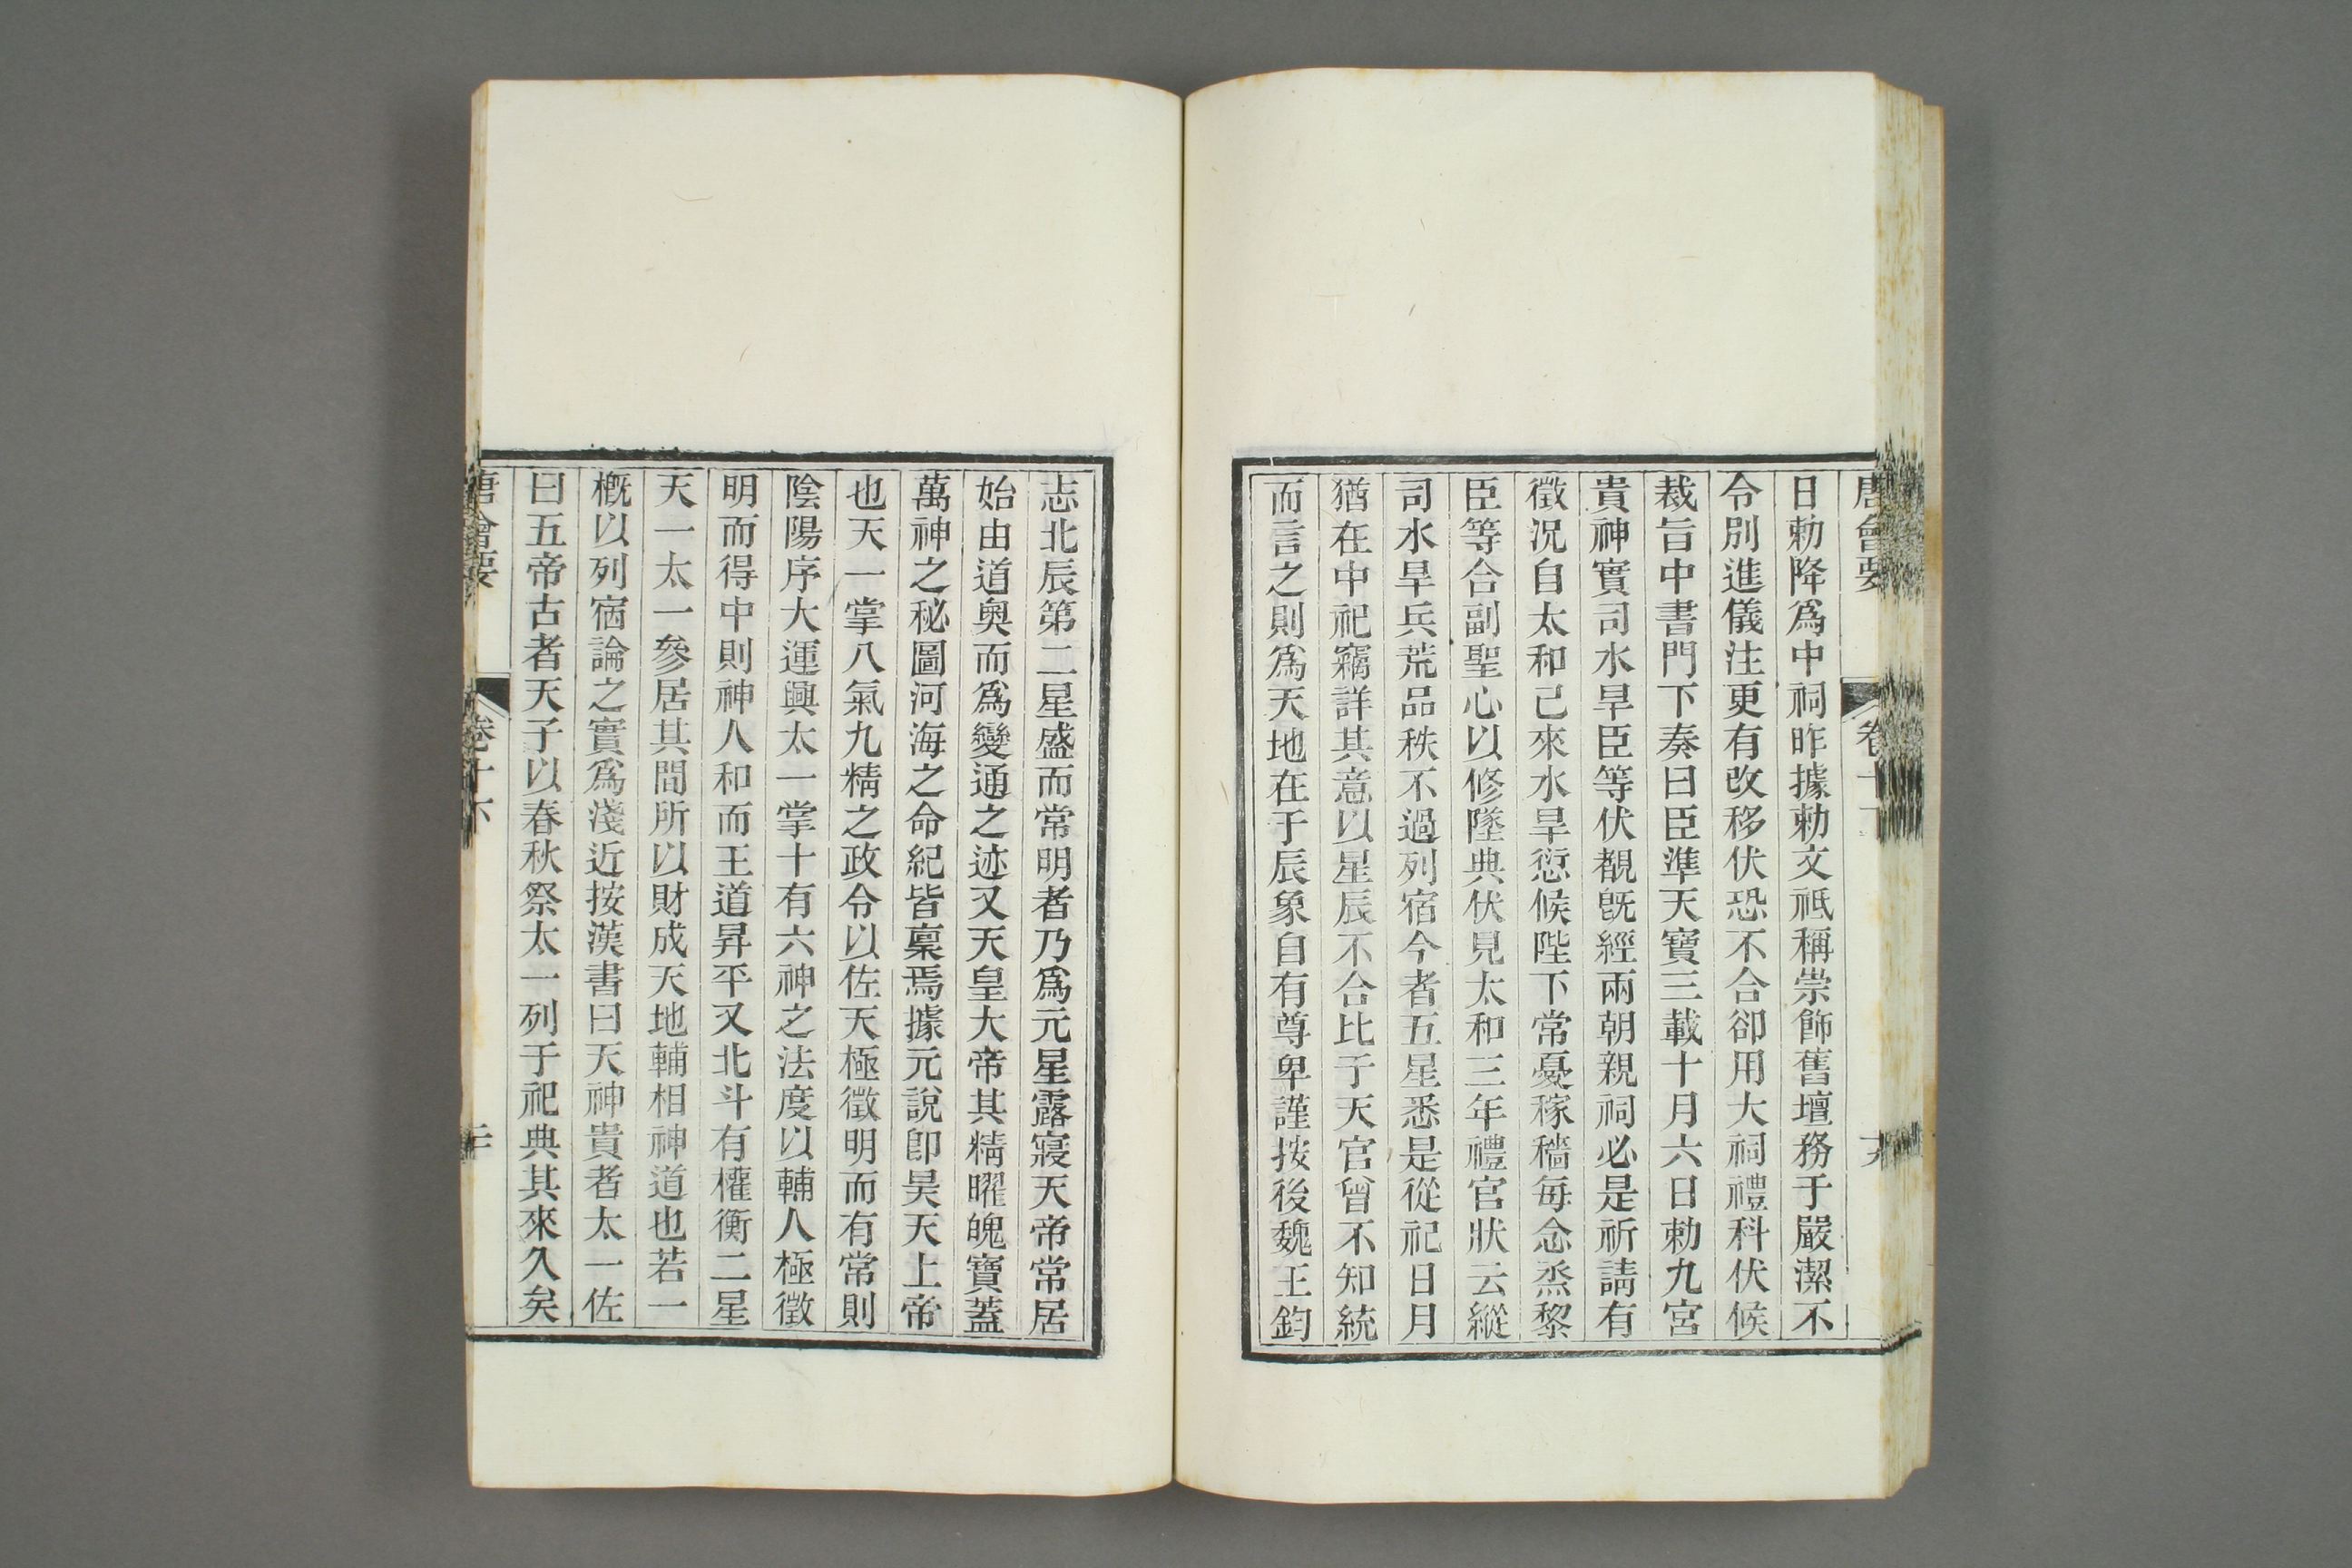 唐會要 卷十
日勅降爲中祠昨據勅文祗稱崇飾舊壇務于嚴潔不
令別進儀注更有改移伏恐不合卻用大祠禮科伏候
裁旨中書門下奏曰臣準天寶三載十月六日勅九宮
貴神實司水旱臣等伏覩旣經兩朝親祠必是祈請有
徵况自太和己來水旱愆候陛下常憂稼穡每念烝黎
臣等合副聖心以修墜典伏見太和三年禮官狀云縱
司水旱兵荒品秩不過列宿今者五星悉是從祀日月
猶在中祀竊詳其意以星辰不合比于天官曾不知統
而言之則爲天地在于辰象自有尊卑謹按後魏王鈞
志北辰第二星盛而常明者乃爲元星露寢天帝常居
始由道奧而爲變通之迹又天皇大帝其精曜魄寶蓋
萬神之秘圖河海之命紀皆稟焉據元說卽昊天上帝
也天一掌八氣九精之政令以佐天極徵明而有常則
陰陽序大運興太一掌十有六神之法度以輔人極徵
明而得中則神人和而王道昇平又北斗有權衡二星
天一太一參居其間所以財成天地輔相神道也若一
槪以列宿論之實爲淺近按漢書曰天神貴者太一佐
曰五帝古者天子以春秋祭太一列于祀典其來久矣
唐會要 卷十六 二十